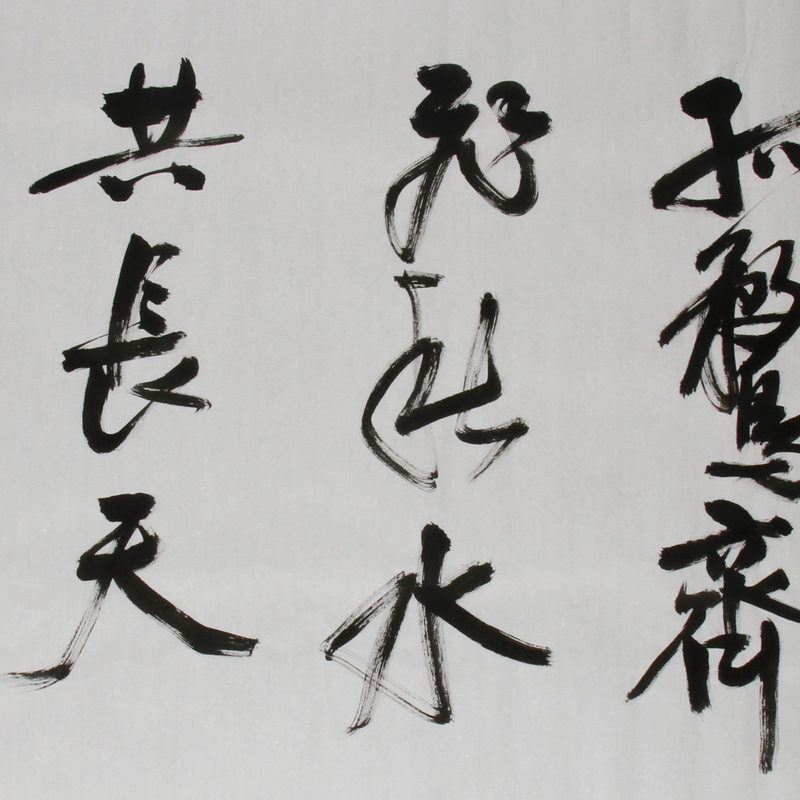 孤鶩齊
飛秋水
共長天